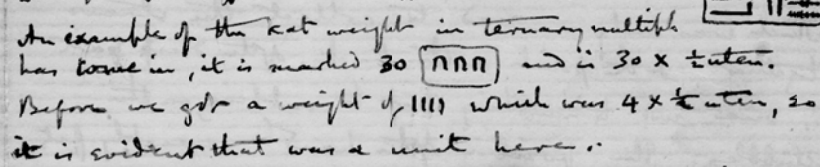 An example of the Kat weight in ternary multiple
has come in, it is marked 30 ∩∩∩ and is 30 × ½ uten.
Before we got a weight of IIII which was 4 × ½ uten, so
it is evident that was a unit here.